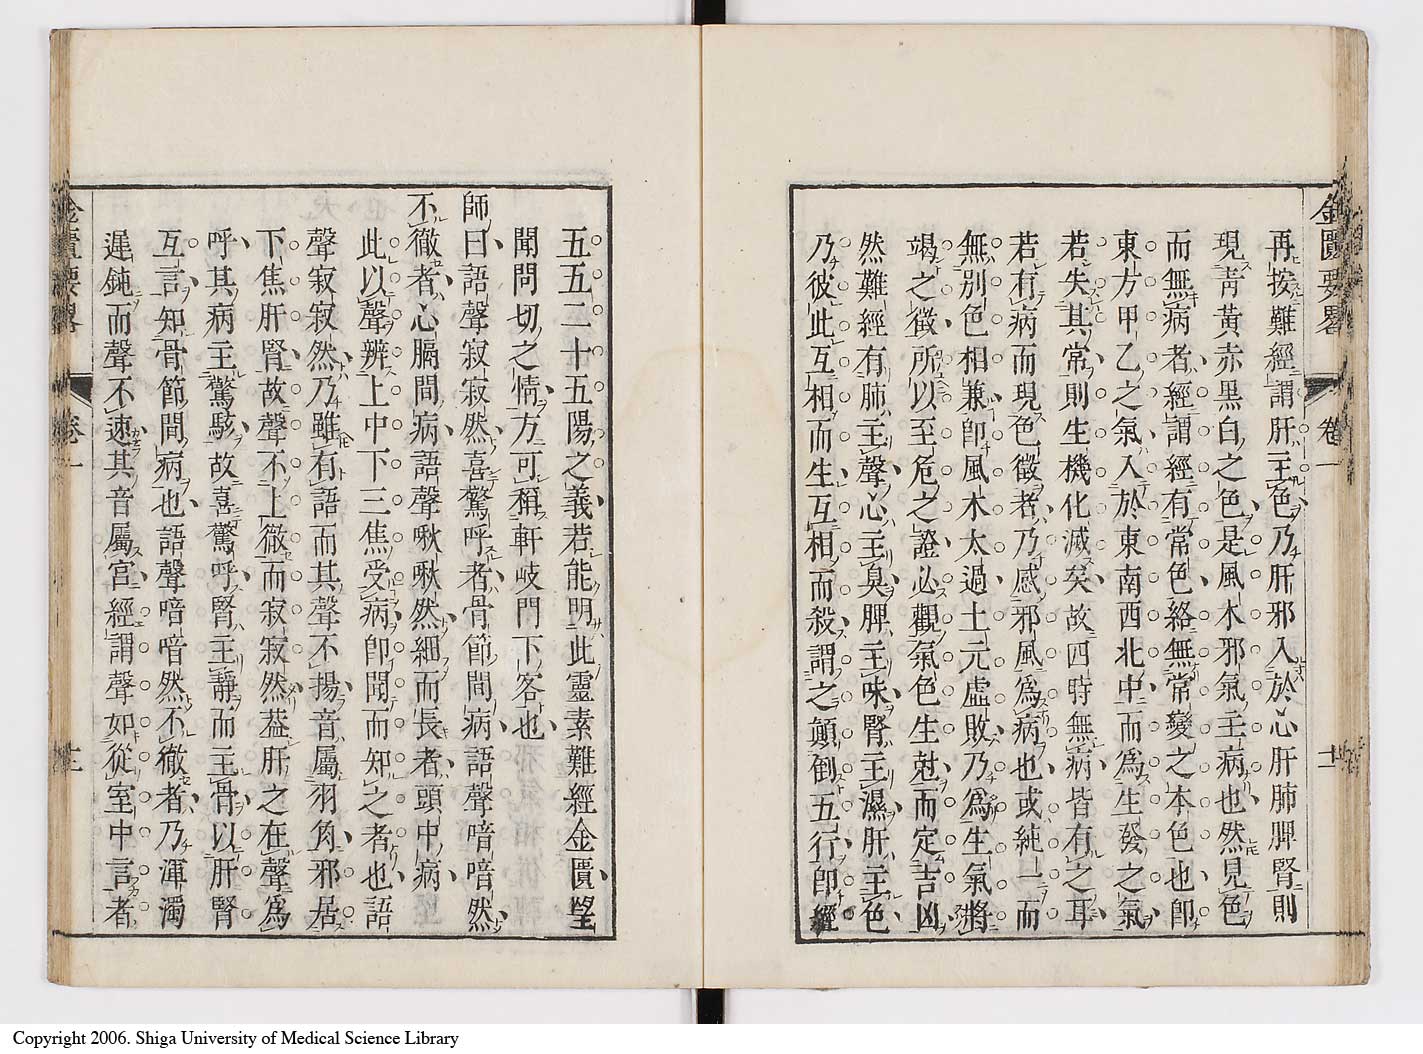 金匱要畧　卷一　十一
再按難經謂肝主色乃肝邪入於心肝肺脾腎則
現靑黃赤黑白之色是風木邪氣主病也然見色
而無病者經謂經有常色絡無常變之本色也卽
東方甲乙之氣入於東南西北中而爲生發之氣
若失其常則生機化滅矣故四時無病皆有之耳
若有病而現色徵者乃感邪風爲病也或純一而
無別色相兼卽風木太過土元虛敗乃爲生氣將
竭之徵所以至危之證必觀氣色生尅而定吉凶
然難經有肺主聲心主臭脾主味腎主濕肝主色
乃彼此互相而生互相而殺謂之顛倒五行卽經
五五二十五陽之義若能明此靈素難經金匱望
聞問切之情方可稱軒岐門下客也
師曰語聲寂寂然喜驚呼者骨節間病語聲喑喑然
不徹者心膈間病語聲啾啾然細而長者頭中病
此以聲辨上中下三焦受病卽聞而知之者也語
聲寂寂然乃雖有語而其聲不揚音屬羽角邪居
下焦肝腎故聲不上徹而寂寂然葢肝之在聲爲
呼其病主驚駭故喜驚呼腎主靜而主骨以肝腎
互言知骨節間病也語聲喑喑然不徹者乃渾濁
遲鈍而聲不速其音屬宮經謂聲如從室中言者
金匱要畧　卷一
Copyright 2006. Shiga University of Medical Science Library